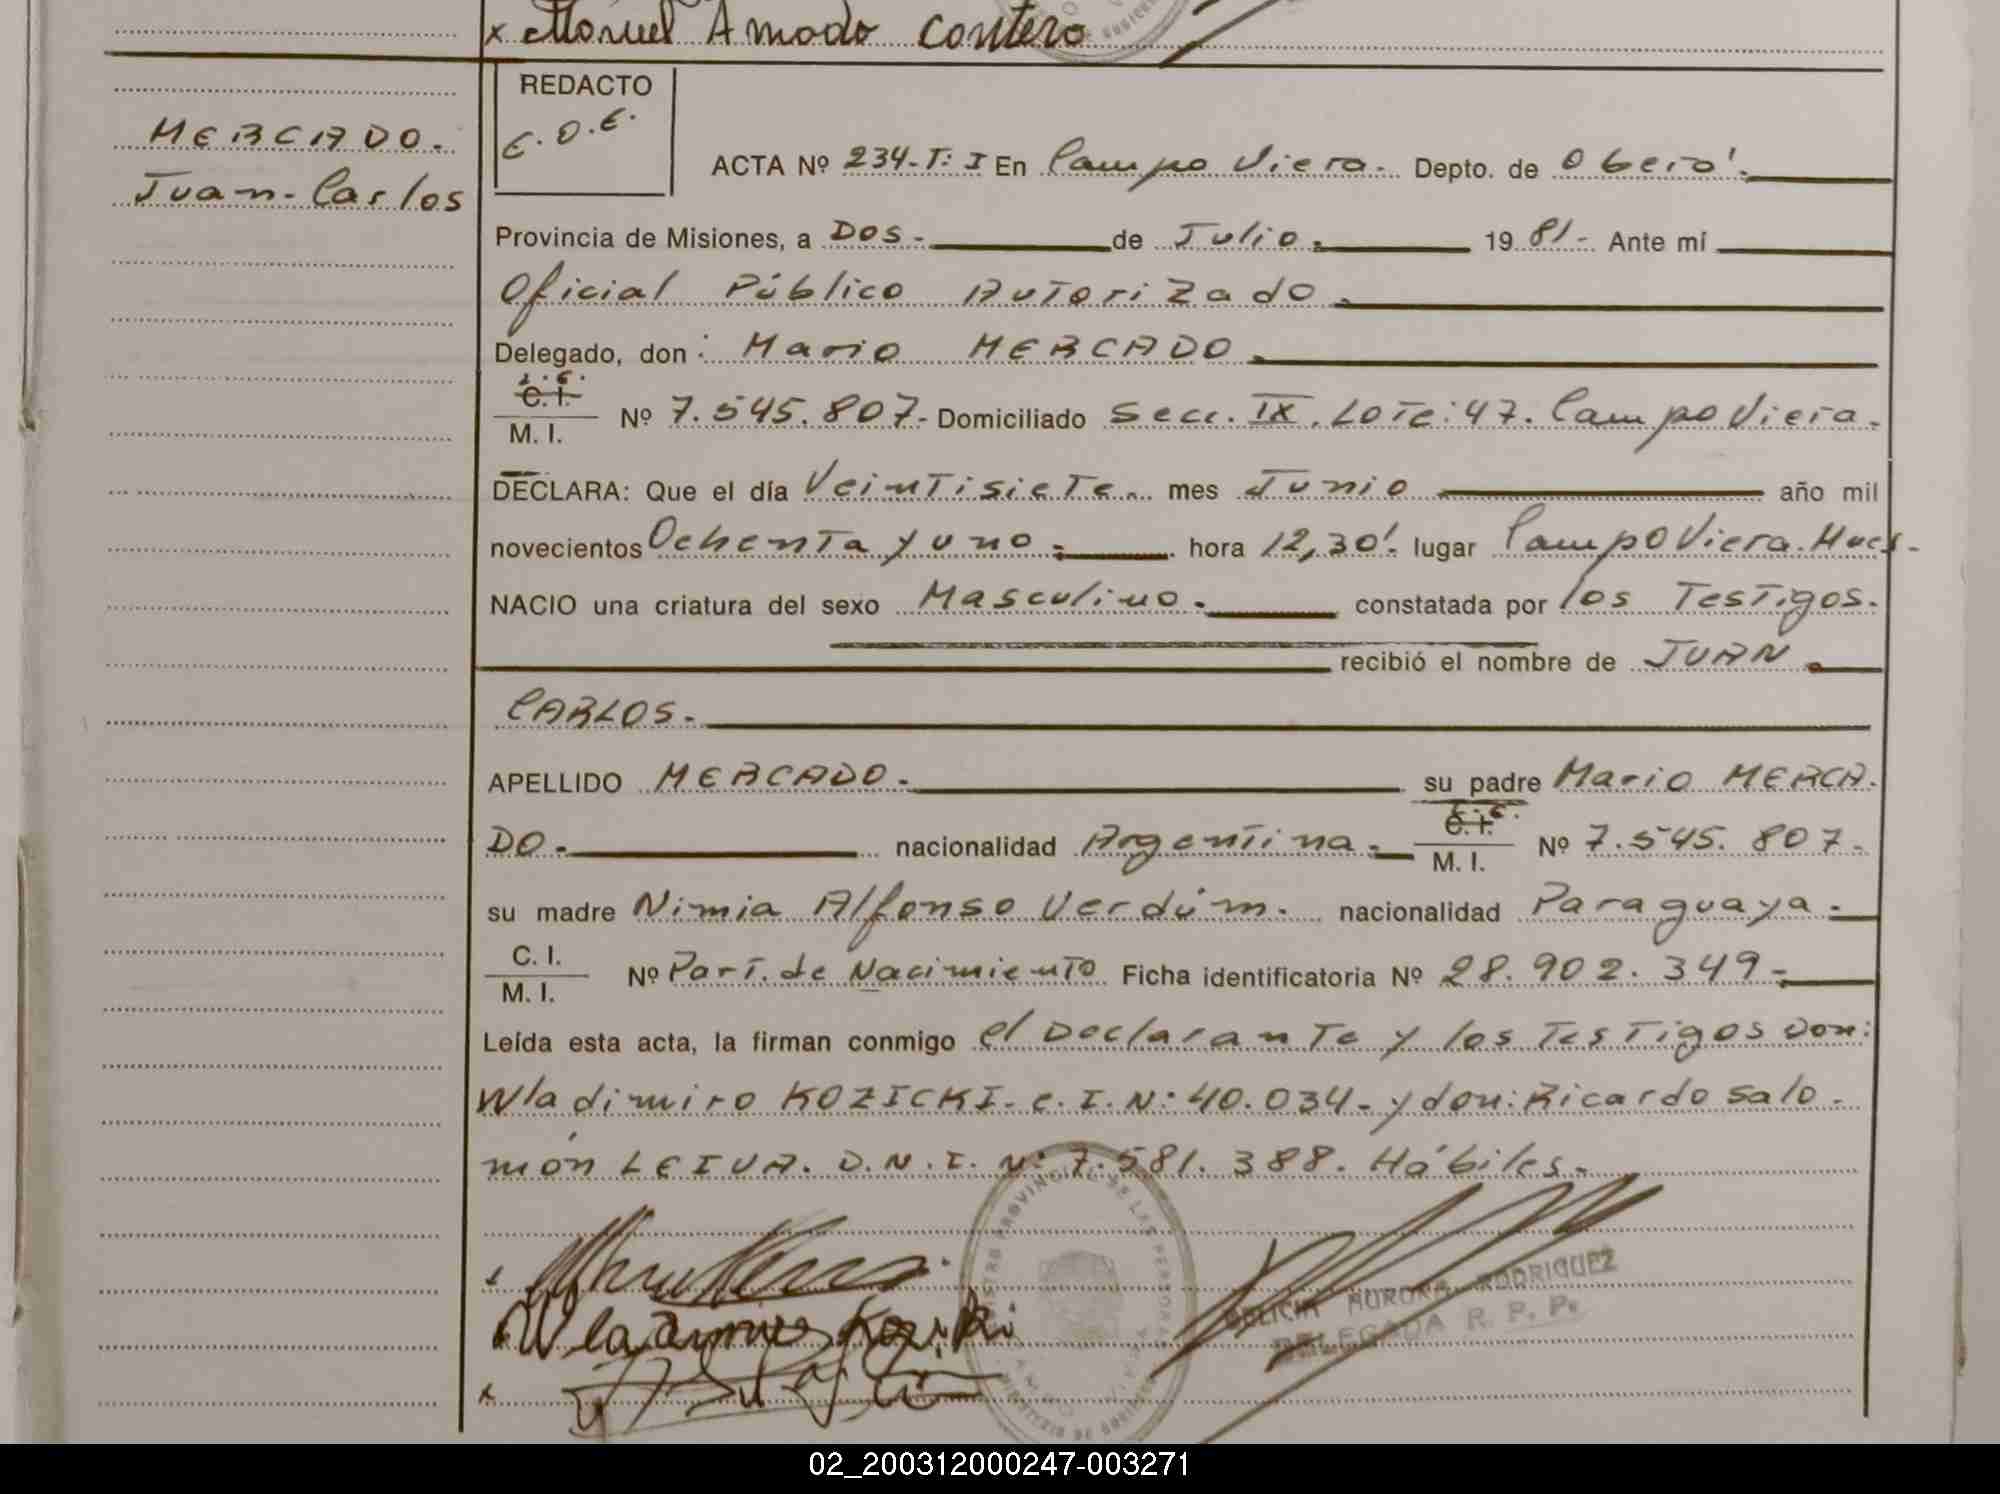 x Manuel Amado Contero
REDACTO
E.O.E.
MERCADO.
Juan-Carlos
ACTA Nº 234-T: I En Campo Viera. Depto. de Oberá.
Provincia de Misiones, a Dos- de Julio. 19 81- Ante mí
Oficial Público Autorizado.
Delegado, don: Mario MERCADO.
C. I. / M. I. Nº 7.545.807- Domiciliado Secc. IX. Lote: 47. Campo Viera.
DECLARA: Que el día Veintisiete mes Junio año mil
novecientos Ochenta y uno. hora 12,30'. lugar Campo Viera.
NACIO una criatura del sexo Masculino. constatada por los Testigos.
recibió el nombre de JUAN
CARLOS.
APELLIDO MERCADO. su padre Mario MERCA-
DO. nacionalidad Argentina. C. I. / M. I. Nº 7.545.807-
su madre Nimia Alfonso Verdúm. nacionalidad Paraguaya.
C. I. / M. I. Nº Part. de Nacimiento Ficha identificatoria Nº 28.902.349-
Leída esta acta, la firman conmigo el Declarante y los Testigos Don:
Wladimiro KOZICKI. C.I.N: 40.034- y don: Ricardo Salo-
món LEIVA. D.N.I. N: 7.581.388. Hábiles.
AURORA RODRIGUEZ
DELEGADA R. P. P.
02_200312000247-003271